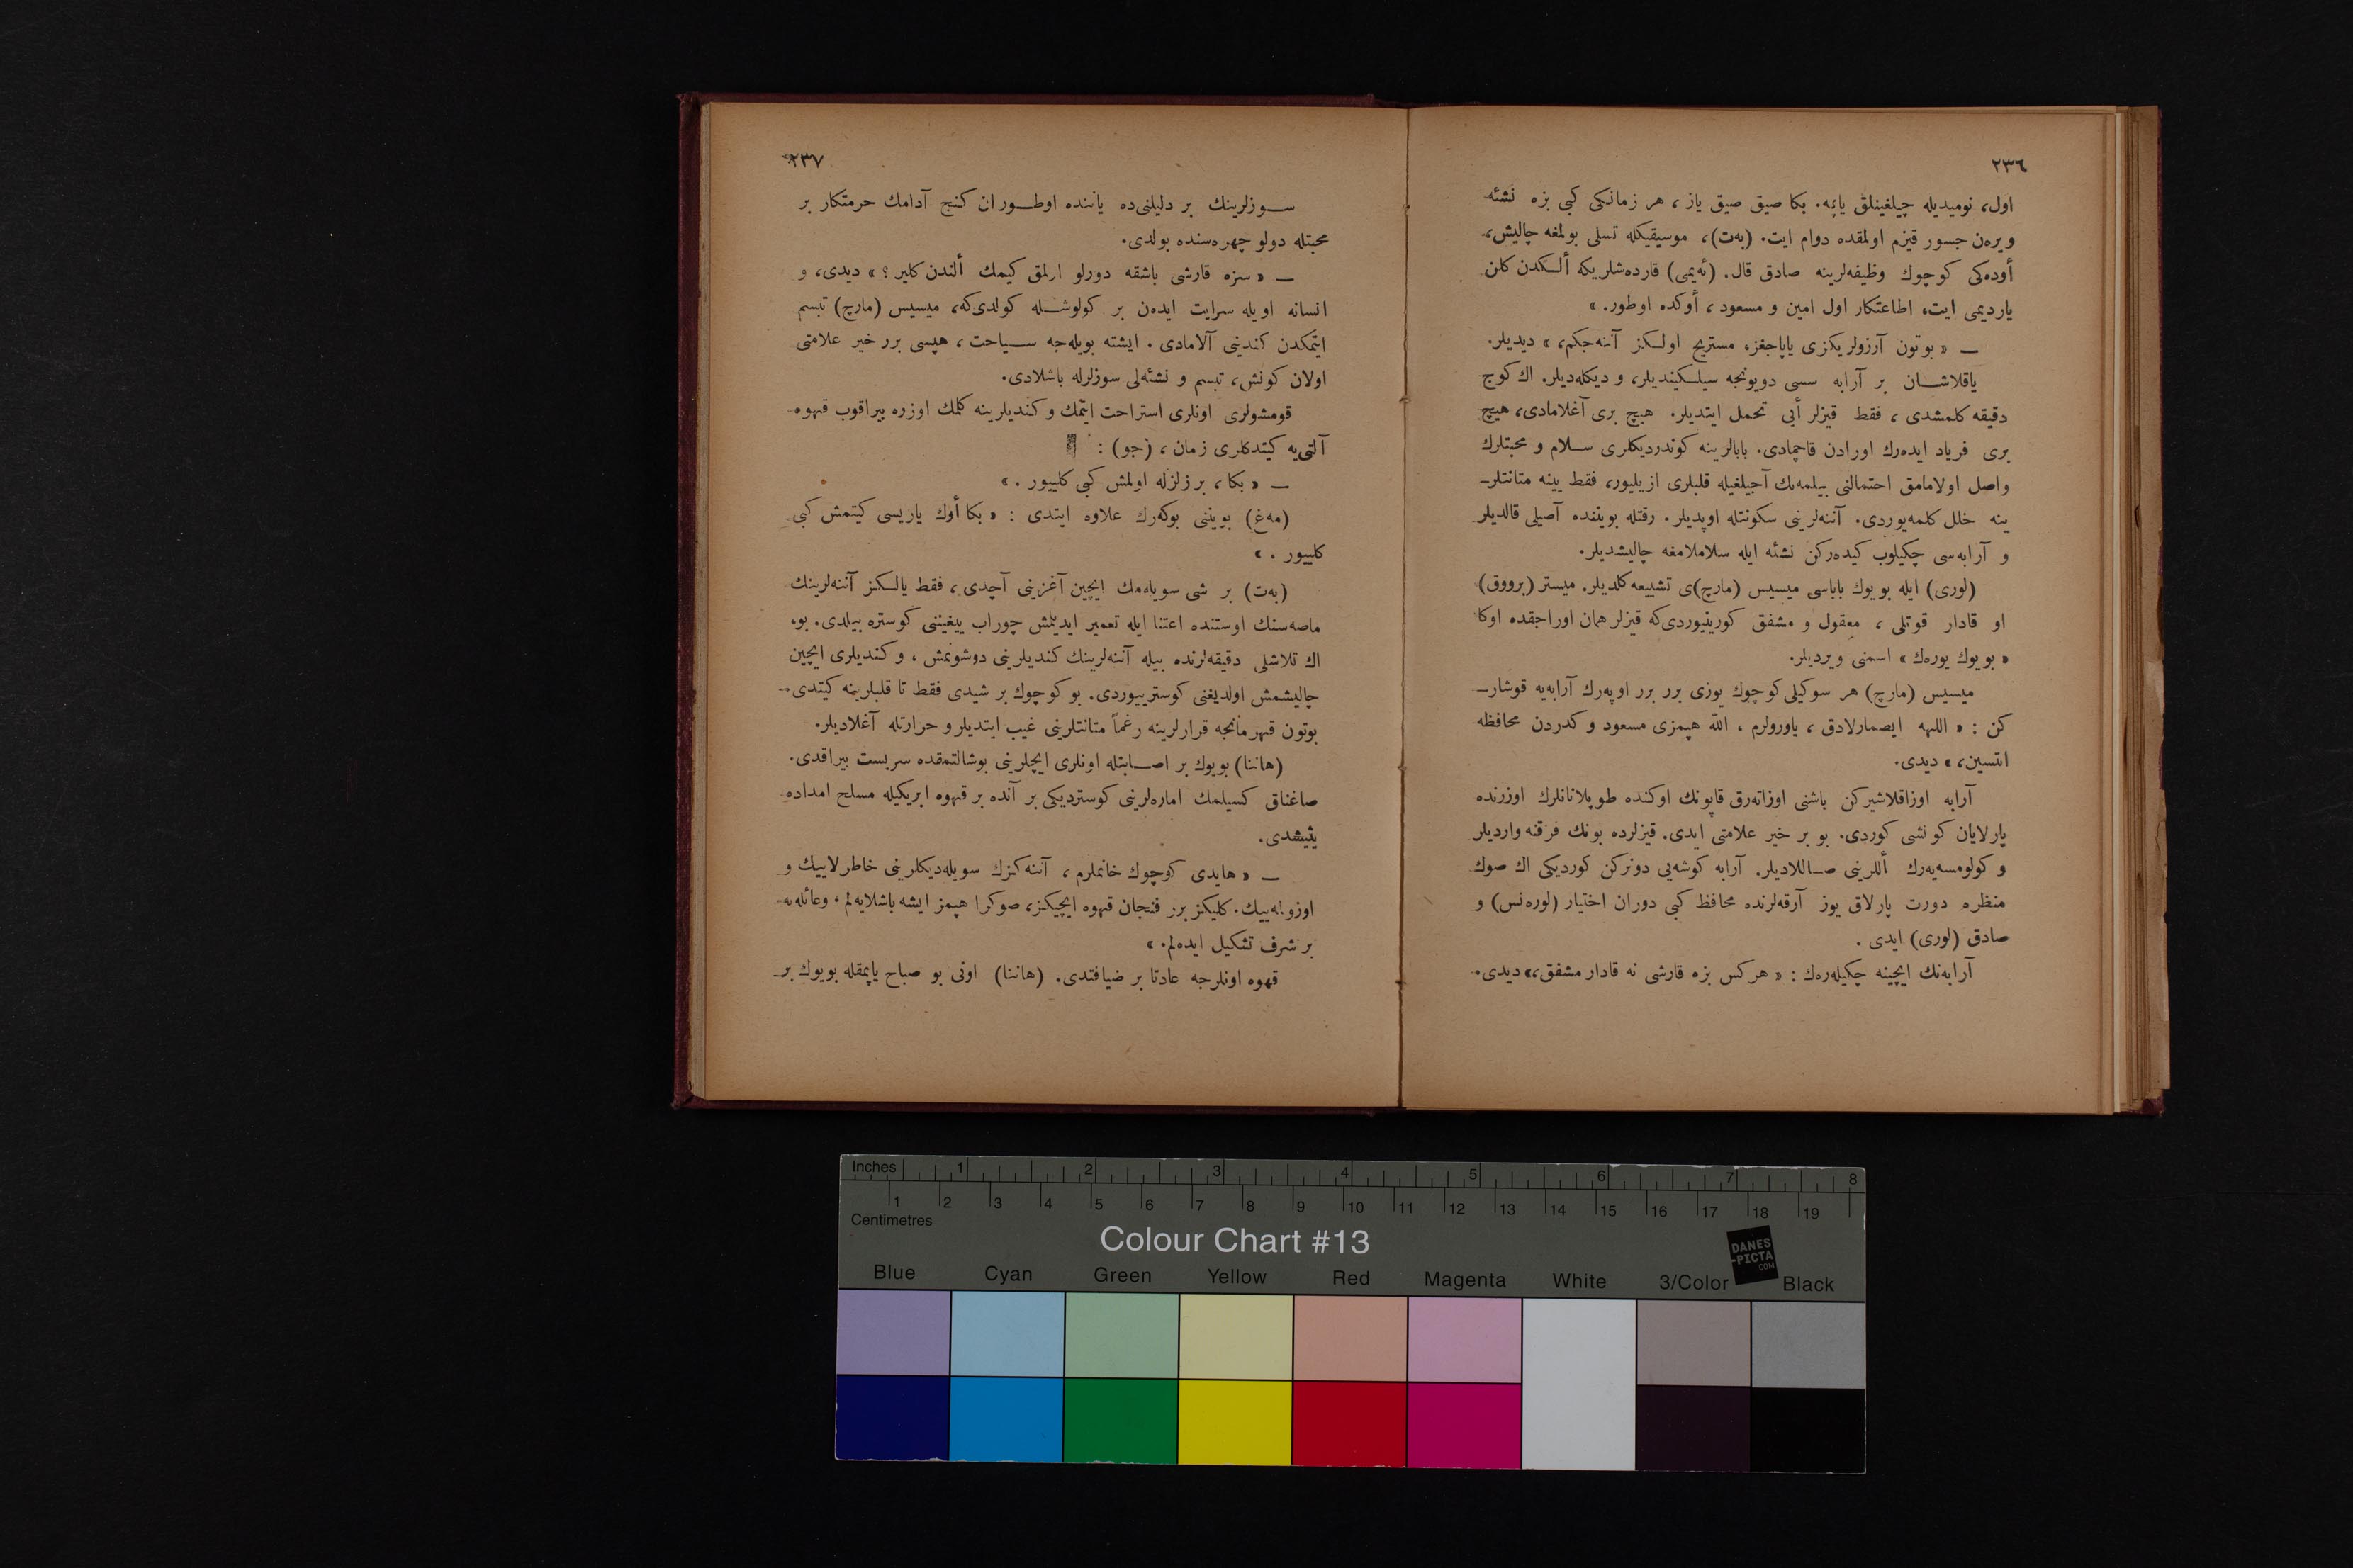 ٢٣٦
اول، نومیدیله چیلغینلق یاپه. بكا صیق صیق یاز، هر زمانکی کبی بزه نشئه
ویره‌ن جسور قیزم اولمقده دوام ایت. (به‌ت)، موسیقیکله تسلی بولمغه چالیش،
أوده‌کی کوچوك وظیفه‌لرینه صادق قال. (ئه‌یمی) قارده‌شلریکه ألـکدن کلن
یاردیمی ایت، اطاعتکار اول امین و مسعود، أوکده اوطور. »
— « بوتون آرزولریکزی یاپاجغز، مستریح اولـکز آننه‌جکم، » دیدیلر.
یاقلاشـان بر آرابه سسی دویونجه سیلـکیندیلر، و دیکله‌دیلر. اك کوج
دقیقه کلمشدی، فقط قیزلر أیی تحمل ایتدیلر. هیچ بری آغلامادی، هیچ
بری فریاد ایده‌رك اورادن قاچمادی. بابالرینه کوندردیکلری سـلام و محبتلرك
واصل اولامامق احتمالنی بیلمه‌نك آجیلغیله قلبلری ازیلیور، فقط یینه متانتلر-
ینه خلل کلمه‌یوردی. آننه‌لرینی سکونتله اوپدیلر. رقتله بویننده آصیلی قالدیلر
و آرابه‌سی چکیلوب کیده‌رکن نشئه ایله سلاملامغه چالیشدیلر.
(لوری) ایله بویوك باباسی میسیس (مارچ)ی تشییعه کلدیلر. میستر (برووق)
او قادار قوتلی، معقول و مشفق کورینیوردی‌که قیزلر همان اوراجقده اوکا
« بویوك یوره‌ك » اسمنی ویردیلر.
میسیس (مارچ) هر سوکیلی کوچوك یوزی برر برر اوپه‌رك آرابه‌یه قوشار-
کن : « اللهه ایصمارلادق، یاورولرم، الله هپمزی مسعود و کدردن محافظه
ایتسین، » دیدی.
آرابه اوزاقلاشیرکن باشنی اوزاته‌رق قاپونك اوکنده طوپلانانلرك اوزرنده
پارلایان کونشی کوردی. بو بر خیر علامتی ایدی. قیزلرده بونك فرقنه واردیلر
و کولومسه‌یه‌رك أللرینی صـاللادیلر. آرابه کوشه‌یی دونرکن کوردیکی اك صوك
منظره دورت پارلاق یوز آرقه‌لرنده محافظ کبی دوران اختیار (لوره‌نس) و
صادق (لوری) ایدی .
آرابه‌نك ایچینه چکیله‌ره‌ك : « هرکس بزه قارشی نه قادار مشفق،» دیدی.
٢٣٧
سـوزلرینك بر دلیلنی‌ده یاننده اوطـوران کنج آدامك حرمتکار بر
محبتله دولو چهره‌سنده بولدی.
— « سزه قارشی باشقه دورلو اولمق کیمك ألندن کلیر ؟ » دیدی، و
انسانه اویله سرایت ایده‌ن بر کولوشـله کولدی‌که، میسیس (مارچ) تبسم
ایتمکدن کندینی آلامادی . ایشته بویله‌جه سـیاحت، هپسی برر خیر علامتی
اولان کونش، تبسم و نشئه‌لی سوزلرله باشلادی.
قومشولری اونلری استراحت ایتمك و کندیلرینه کلمك اوزره بیراقوب قهوه-
آلتی‌یه کیتدکلری زمان، (جو) :
— « بكا، بر زلزله اولمش کبی کلییور . »
(مه‌غ) بویننی بوکه‌رك علاوه ایتدی : « بكا أوك یاریسی کیتمش کبی
کلییور . »
(به‌ت) بر شی سویله‌مك ایچین آغزینی آچدی، فقط یالـکز آننه‌لرینك
ماصه‌سنك اوستنده اعتنا ایله تعمیر ایدیلمش چوراب ییغیننی کوستره بیلدی. بو،
اك تلاشلی دقیقه‌لرنده بیله آننه‌لرینك کندیلرینی دوشونمش، و کندیلری ایچین
چالیشمش اولدیغنی کوستریيوردی. بو کوچوك بر شیدی فقط تا قلبلرینه کیتدی--
بوتون قهرمانجه قرارلرینه رغماً متانتلرینی غیب ایتدیلر و حرارتله آغلادیلر.
(هاننا) بویوك بر اصـابتله اونلری ایچلرینی بوشالتمقده سربست بیراقدی.
صاغناق کسیلمك اماره‌لرینی کوستردیکی بر آنده بر قهوه ابریکیله مسلح امداده
یتیشدی.
— « هایدی کوچوك خانملرم، آننه‌کزك سویله‌دیکلرینی خاطرلاییك و
اوزوله‌ییك. کلیکز برر فنجان قهوه ایچیکز، صوکرا هپمز ایشه باشلایه‌لم، وعائله‌یه-
بر شرف تشکیل ایده‌لم. »
قهوه اونلرجه عادتا بر ضیافتدی. (هاننا) اونی بو صباح یاپمقله بویوك بر-
Inches 1 2 3 4 5 6 7 8
1 2 3 4 5 6 7 8 9 10 11 12 13 14 15 16 17 18 19
Centimetres
Colour Chart #13
DANES
-PICTA
.COM
Blue Cyan Green Yellow Red Magenta White 3/Color Black